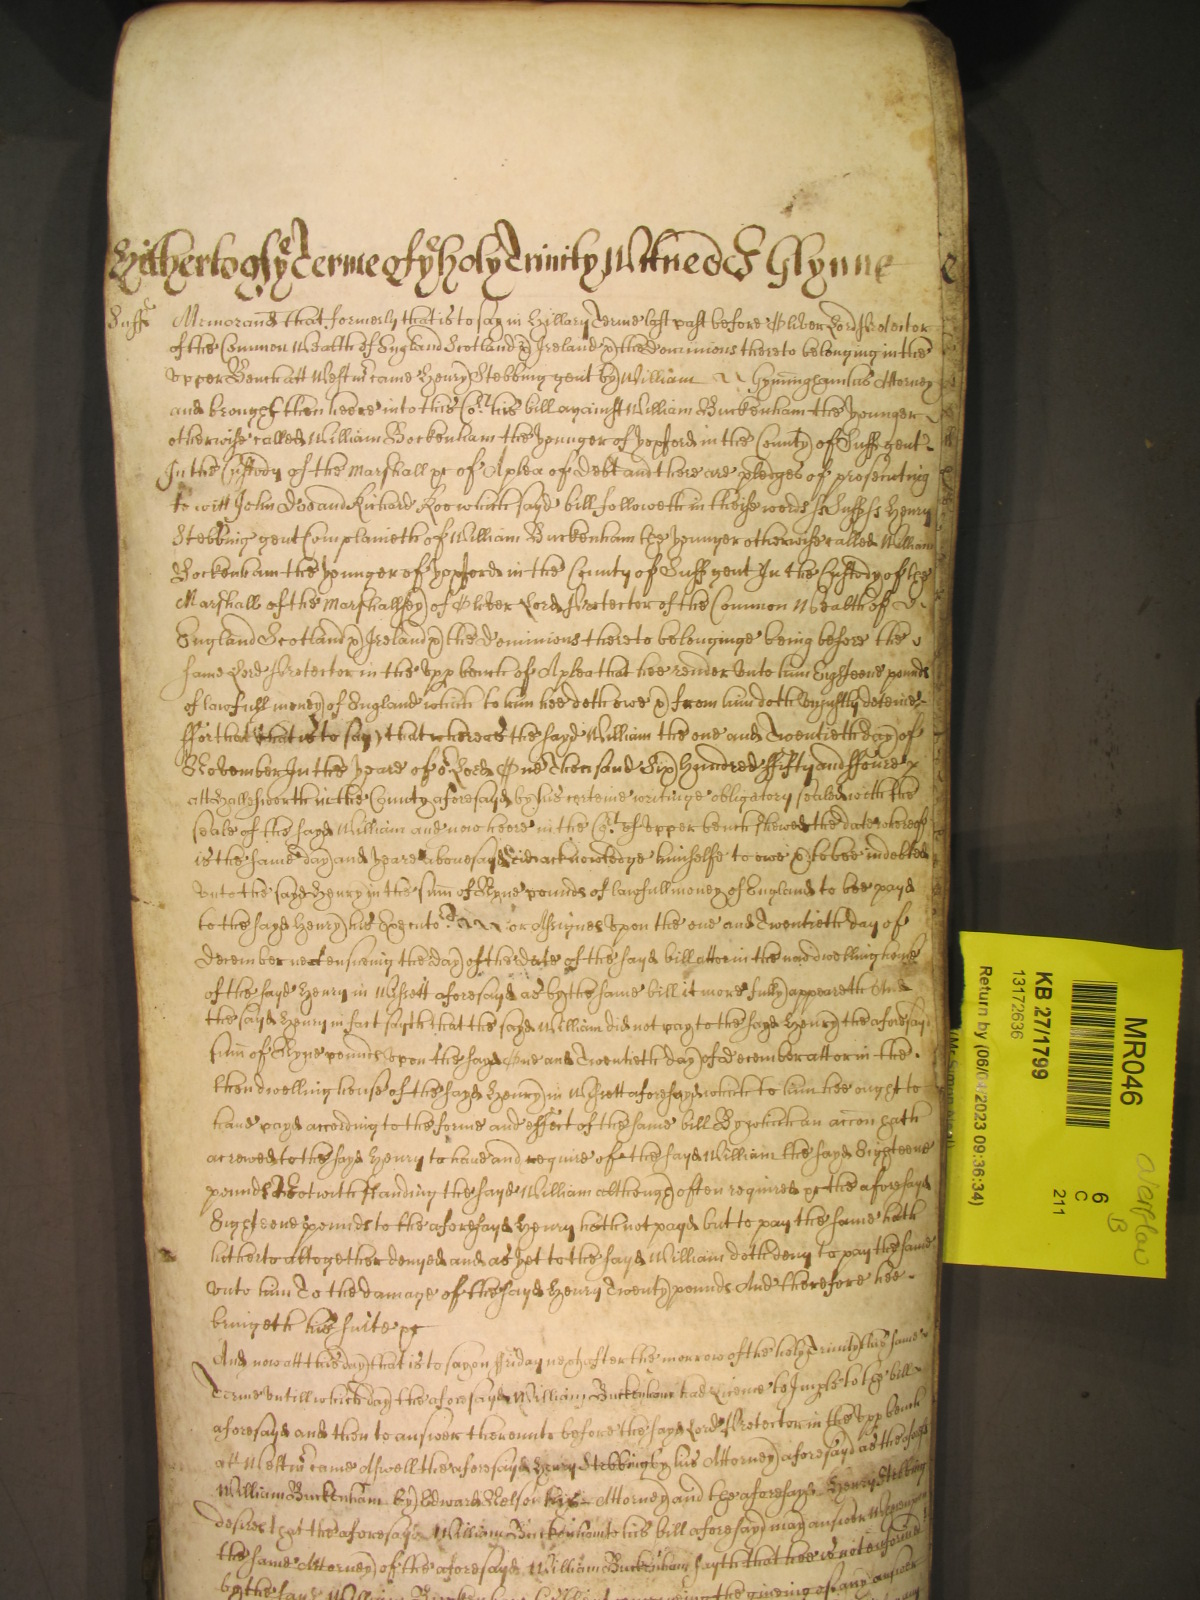 Hitherto of ye Terme of ye holy Trinity Witnes J Glynne
Suff Memorand that formerly that is to say in Hillary Terme last past before Oliver Lord Protector
of the Common Wealth of England Scotland & Ireland & the Dominions thereto belonging in the
Upper Bench att Westmr came Henry Stebbing gent by William Hyningham his Attorney
and brought then heere into this Cort his bill against William Buckenham the younger
otherwise called William Bockenham the younger of Yoxford in the County of Suff gent
In the Custody of the Marshall &c of A plea of debt and there are pledges of prosecuting
to witt John Doe and Richard Roo which sayd bill followeth in theise words ss Suff ss Henry
Stebbing gent Complaineth of William Buckenham the younger otherwise called William
Bockenham the younger of Yoxford in the County of Suff gent In the Custody of the
Marshall of the Marshallsey of Oliver Lord Protector of the Common Wealth of
England Scotland & Ireland & the Dominions thereto belonginge being before the
same Lord Protector in the Upp bench of A plea that hee render unto him Eighteene pounds
of lawfull money of England which to him hee doth owe & from him doth unjustly deteine
ffor that that is to say that whereas the sayd William the one and Twentieth day of
November In the yeare of or Lord One Thousand Six Hundred ffifty and ffoure
att Hallesworth in the County aforesayd by his certeine writinge obligatory sealed with the
seale of the sayd William and now heere in the Cort of Upper bench shewed the date whereof
is the same day and yeare abovesayd did acknowledge himselfe to owe & to bee indebted
unto the sayd Henry in the sum of Nyne pounds of lawfull money of England to bee payd
to the sayd Henry his Executors or Assignes Upon the one and Twentieth day of
December next ensueing the day of the date of the sayd bill att or in the now dwelling house
of the sayd Henry in Wissett aforesayd as by the same bill it more fully appeareth And
the sayd Henry in fact sayth that the sayd William did not pay to the sayd Henry the aforesayd
sum of Nyne pounds upon the sayd One and Twentieth day of December att or in the
then dwelling house of the sayd Henry in Wissett aforesayd which to him hee ought to
have payd according to the forme and effect of the same bill By which an accon hath
acrewed to the sayd Henry to have and require of the sayd William the sayd Eighteene
pounds Notwithstanding the sayd William although often required &c the aforesayd
Eighteene pounds to the aforesayd Henry hath not payd but to pay the same hath
hitherto altogether denyed and as yet to the sayd William doth deny to pay the same
unto him To the damage of the sayd Henry Twenty pounds And therefore hee
bringeth his suite &c
And now att this day that is to say on ffriday next after the morrow of the holy Trinity this same
Terme untill which day the aforesayd William Buckenham had Licence to Imple to the bill
aforesayd and then to answer thereunto before the sayd Lord Protector in the Upp bench
att Westmr came Aswell the aforesayd Henry Stebbing by his Attorney aforesayd as the aforesayd
William Buckenham by Edward Nelson his Attorney and the aforesayd Henry Stebbing
desires that the aforesayd William Buckenham to his bill aforesayd may answer Whereupon
the same Attorney of the aforesayd William Buckenham sayth that hee is not enformed
by the sayd William Buckenham the giveing of any answer
MR046
KB 27/1799
13172636
Return by (06/04/2023 09:36:34)
6
C
211
overflow
B